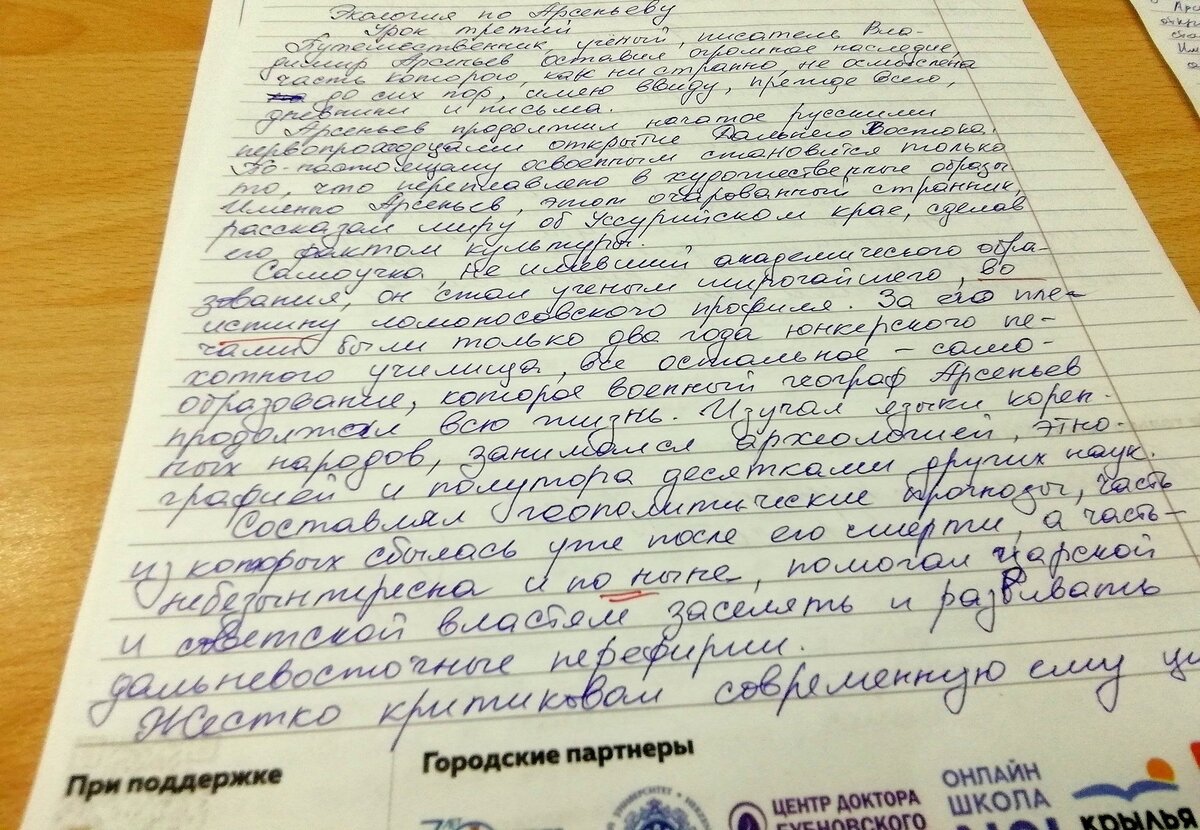 Экология по Арсеньеву
Урок третий
Путешественник, учёный, писатель Вла-
димир Арсеньев оставил огромное наследие,
часть которого, как ни странно, не осмыслена
до сих пор, имею ввиду, прежде всего,
дневники и письма.
Арсеньев продолжил начатое русскими
первопроходцами открытие Дальнего Востока.
По-настоящему освоенным становится только
то, что переплавлено в художественные образы.
Именно Арсеньев, этот очарованный странник,
рассказал миру об Уссурийском крае, сделав
его фактом культуры.
Самоучка, не имевший академического обра-
зования, он стал ученым широчайшего, во
истину ломоносовского профиля. За его пле-
чами были только два года юнкерского пе-
хотного училища, все остальное – само-
образование, которое военный географ Арсеньев
продолжал всю жизнь. Изучал языки корен-
ных народов, занимался археологией, этно-
графией и полутора десятками других наук.
Составлял геополитические прогнозы, часть
из которых сбылась уже после его смерти, а часть –
небезынтересна и по ныне, помогал царской
и советской властям заселять и развивать
дальневосточные перефирии.
Жестко критиковал современную ему ци
При поддержке
Городские партнеры
ЦЕНТР ДОКТОРА
БУБНОВСКОГО
ОНЛАЙН
ШКОЛА
КРЫЛЬЯ